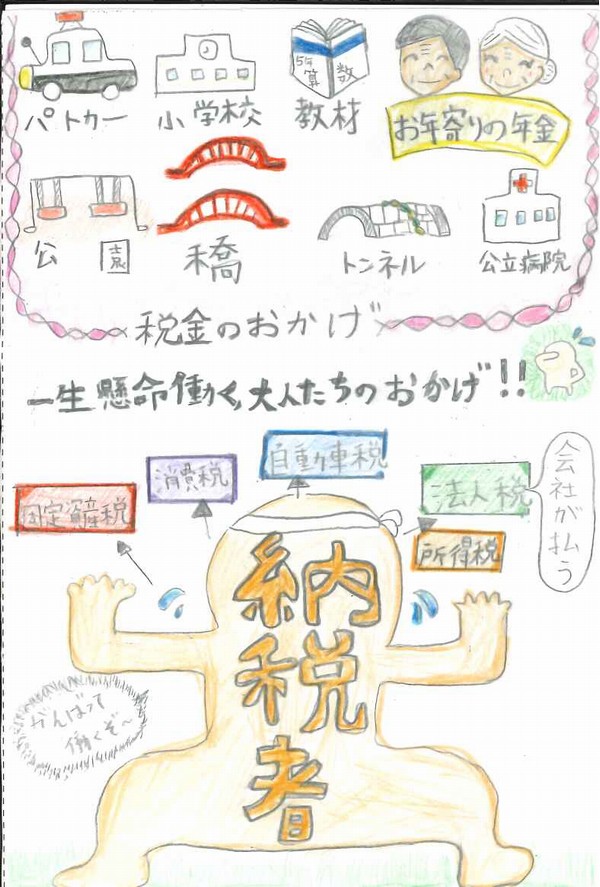 パトカー
小学校
5年
算数
教材
お年寄りの年金
公園
橋
トンネル
公立病院
税金のおかげ
一生懸命働く大人たちのおかげ!!
固定資産税
消費税
自動車税
法人税
会社が払う
所得税
納税者
がんばって
働くぞ〜